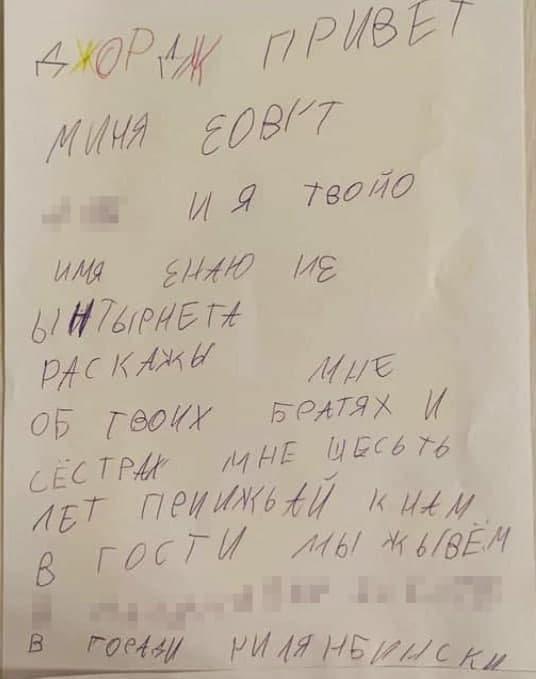 ДЖОРДЖ ПРИВЕТ
МИНЯ ЕОВУТ
И Я ТВОЙО
ИМЯ ЕНАЮ ИЕ
ЫНТЫРНЕТА
РАСКАЖЫ МНЕ
ОБ ТВОИХ БРАТЯХ И
СЁСТРАХ МНЕ ШЕСЬТЬ
ЛЕТ ПРИИЖЬАЙ К НАМ
В ГОСТИ МЫ ЖЫВЁМ
В ГОРАДИ